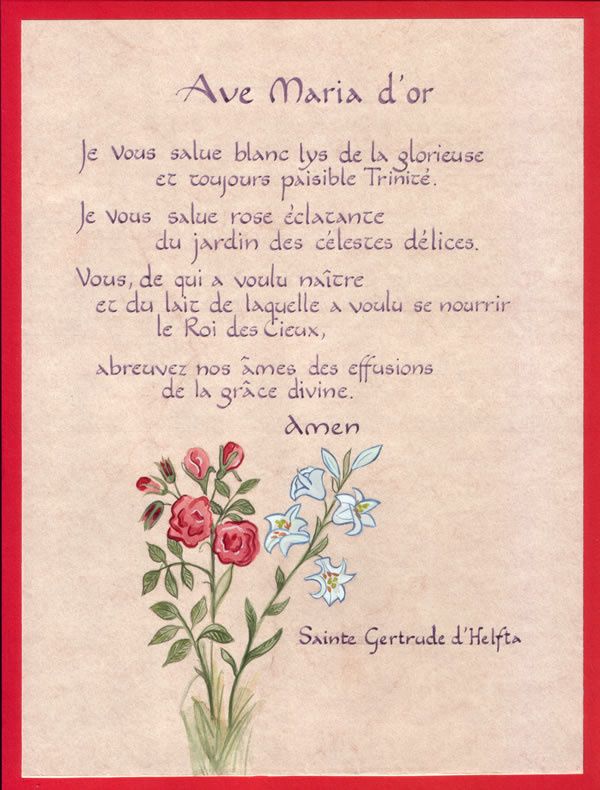 Ave Maria d'or
Je Vous salue blanc lys de la glorieuse
et toujours paisible Trinité.
Je Vous salue rose éclatante
du jardin des célestes délices.
Vous, de qui a voulu naître
et du lait de laquelle a voulu se nourrir
le Roi des Cieux,
abreuvez nos âmes des effusions
de la grâce divine.
Amen
Sainte Gertrude d'Helfta